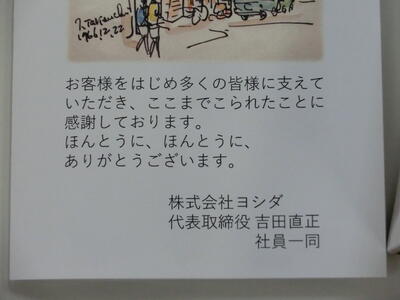 1966.12.22
お客様をはじめ多くの皆様に支えて
いただき、ここまでこられたことに
感謝しております。
ほんとうに、ほんとうに、
ありがとうございます。
株式会社ヨシダ
代表取締役 吉田直正
社員一同